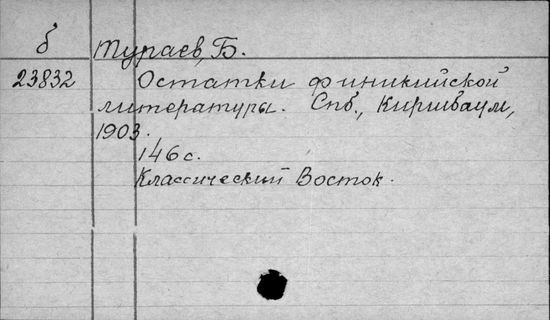 б Тураев, Б.
23832 Остатки финикийской
литературы. Спб., Киршбаум,
1903.
146 с.
Классический Восток.